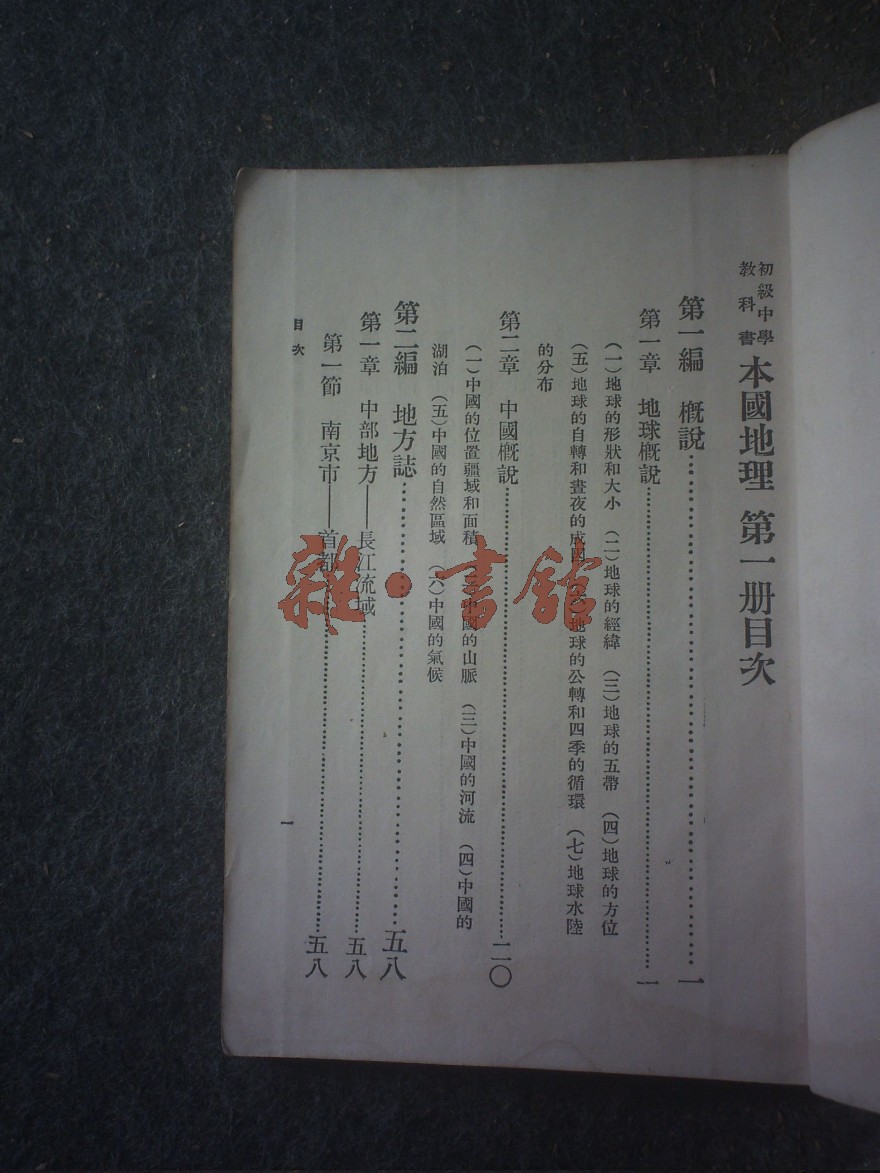 初級中學
教科書
本國地理 第一册目次
第一編 概說 一
第一章 地球概說 一
(一)地球的形狀和大小 (二)地球的經緯 (三)地球的五帶 (四)地球的方位
(五)地球的自轉和晝夜的成因 (六)地球的公轉和四季的循環 (七)地球水陸
的分布
第二章 中國概說 二〇
(一)中國的位置疆域和面積 (二)中國的山脈 (三)中國的河流 (四)中國的
湖泊 (五)中國的自然區域 (六)中國的氣候
第二編 地方誌 五八
第一章 中部地方——長江流域 五八
第一節 南京市——首都 五八
目次
一
雜·書館